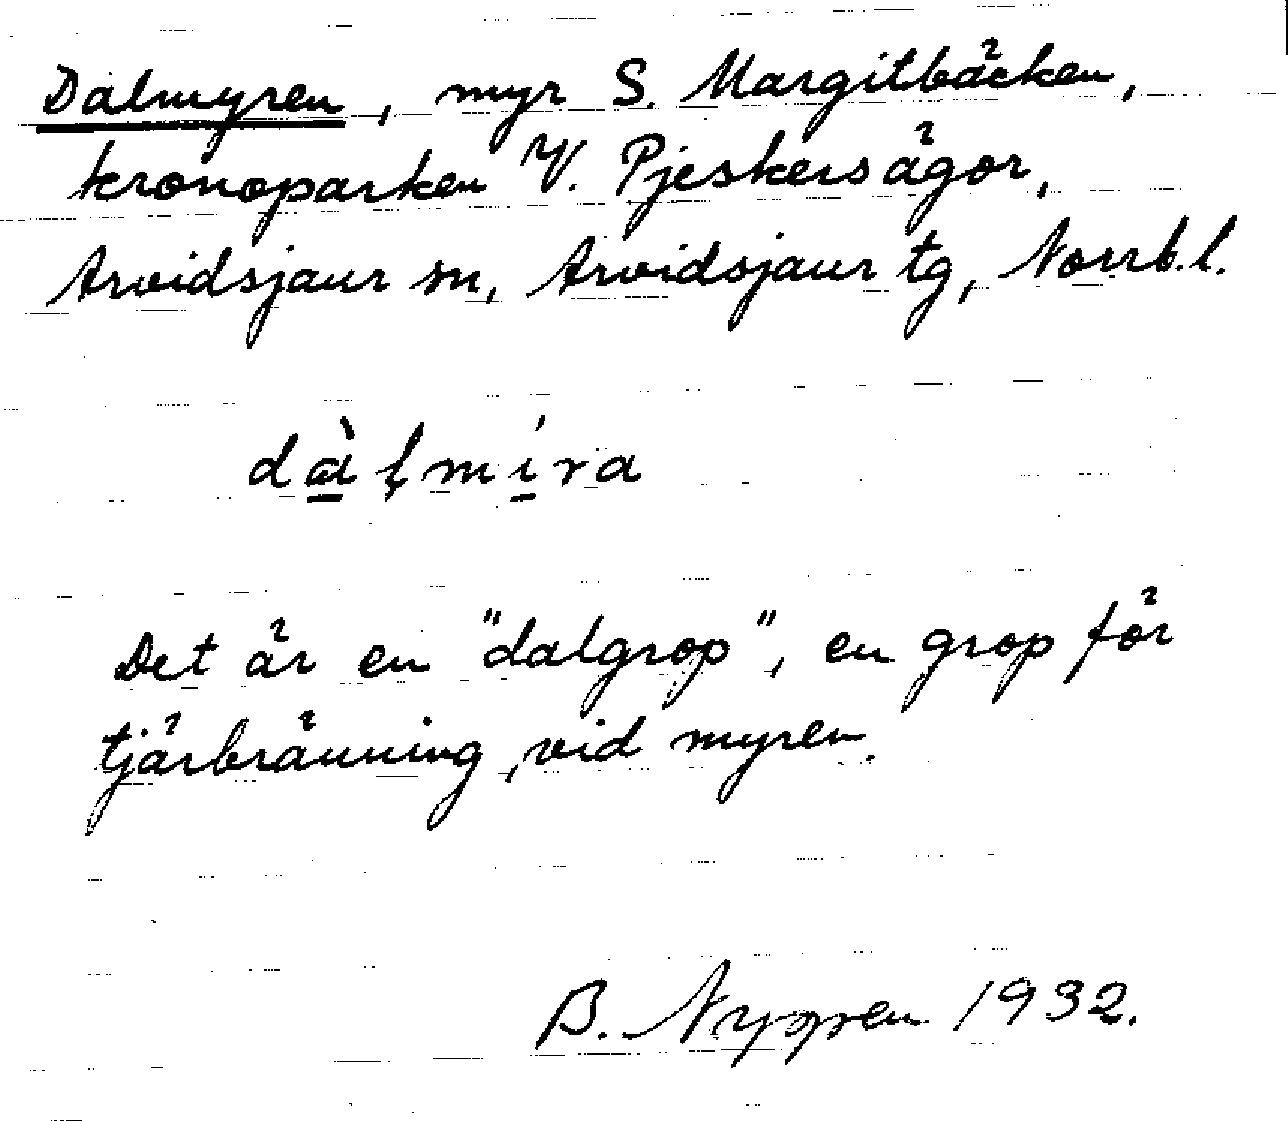 Dalmyren, myr S. Margitbäcken,
kronoparken V. Pjeskersägor,
Arvidsjaur sn, Arvidsjaur tg, Norrb.l.
dà̱ļmí̱ra
Det är en "dalgrop", en grop för
tjärbränning, vid myren.
B. Nygren 1932.